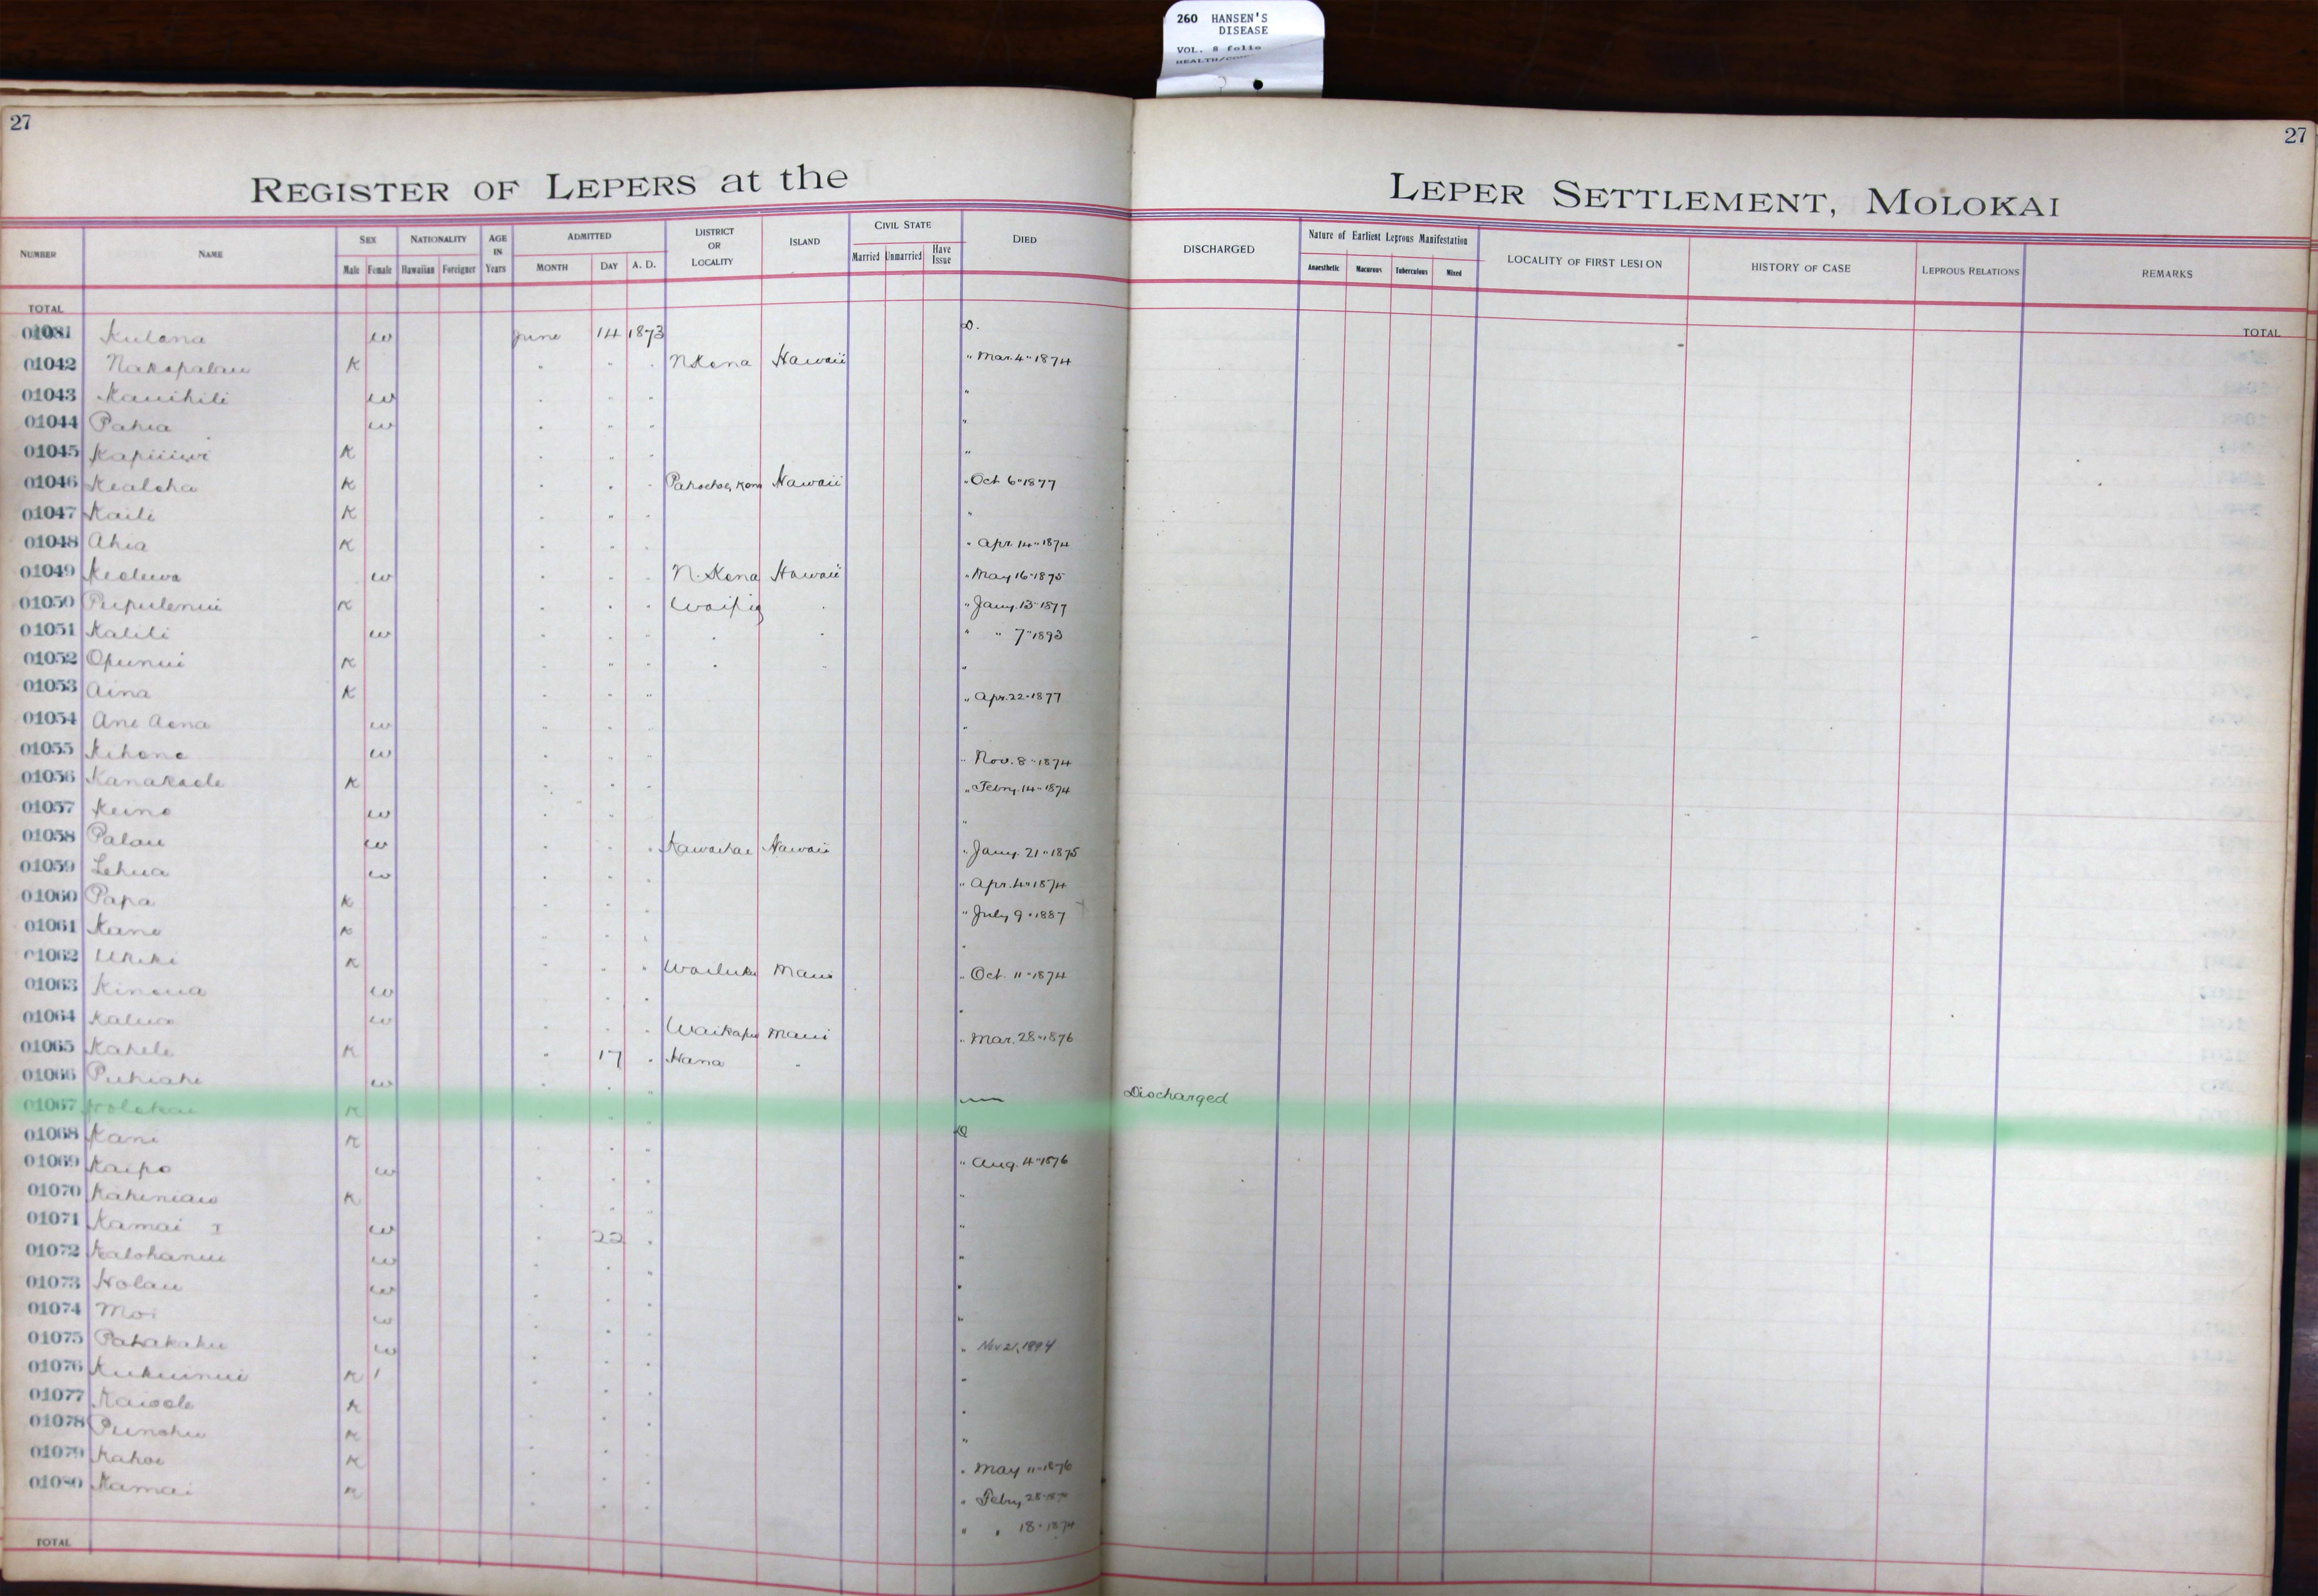 260 HANSEN'S
DISEASE
VOL. 8 folio
27
27
REGISTER OF LEPERS at the LEPER SETTLEMENT, MOLOKAI
NUMBER NAME SEX Male Female NATIONALITY Hawaiian Foreigner AGE IN Years ADMITTED MONTH DAY A. D. DISTRICT OR LOCALITY ISLAND CIVIL STATE Married Unmarried Have Issue DIED DISCHARGED Nature of Earliest Leprous Manifestation Anaesthetic Macurous Tuberculous Mixed LOCALITY OF FIRST LESION HISTORY OF CASE LEPROUS RELATIONS REMARKS
TOTAL TOTAL
Kulana w June 14 1873 D.
01042 Nakapalau K " " " N Kona Hawaii " Mar. 4" 1874
01043 Kauihili w " " " "
01044 Pahia w " " " "
01045 K " " " "
01046 Kealoha K " " " Hawaii " Oct 6" 1877
01047 Kaili K " " " "
01048 Ahia K " " " " Apr. 14" 1874
01049 Keoluwa w " " " N. Kona Hawaii " May 16" 1875
01050 Pupulenui K " " " " Jany. 13" 1877
01051 Kalili w " " " " " " " 7" 1893
01052 Opunui K " " " " " "
01053 Aina K " " " " Apr. 22" 1877
01054 Ane Aona w " " " "
01055 Kehone w " " " " Nov. 8" 1874
01056 Kanakaole K " " " " Febry. 14" 1874
01057 Keino w " " " "
01058 Palau w " " " Kawaihae Hawaii " Jany. 21" 1875
01059 Lehua w " " " " Apr. 4" 1874
01060 Papa K " " " " July 9" 1887
01061 Kane K " " " "
01062 Ukeke K " " " Wailuku Maui " Oct. 11" 1874
01063 Kinoua w " " " "
01064 Kalua w " " " Waikapu Maui " Mar. 28" 1876
01065 Kahele K " 17 " Hana "
01066 Puhiahi w " " " — Discharged
01067 Holokai K " " " D
01068 Kani K " " " " Aug. 4" 1876
01069 Kaipo w " " " "
01070 Kahiniau K " " " "
01071 Kamai I w " 22 " "
01072 Kalohanui w " " " "
01073 Holau w " " " "
01074 Moi w " " " " Nov 21, 1894
01075 Pahakahu w " " " "
01076 Kukuinui K " " " "
01077 Kaiaole K " " " "
01078 Punohu K " " " " May 11" 1876
01079 Kahoe K " " " " Febry 28"
01080 Kamai K " " " " " 18" 1874
TOTAL